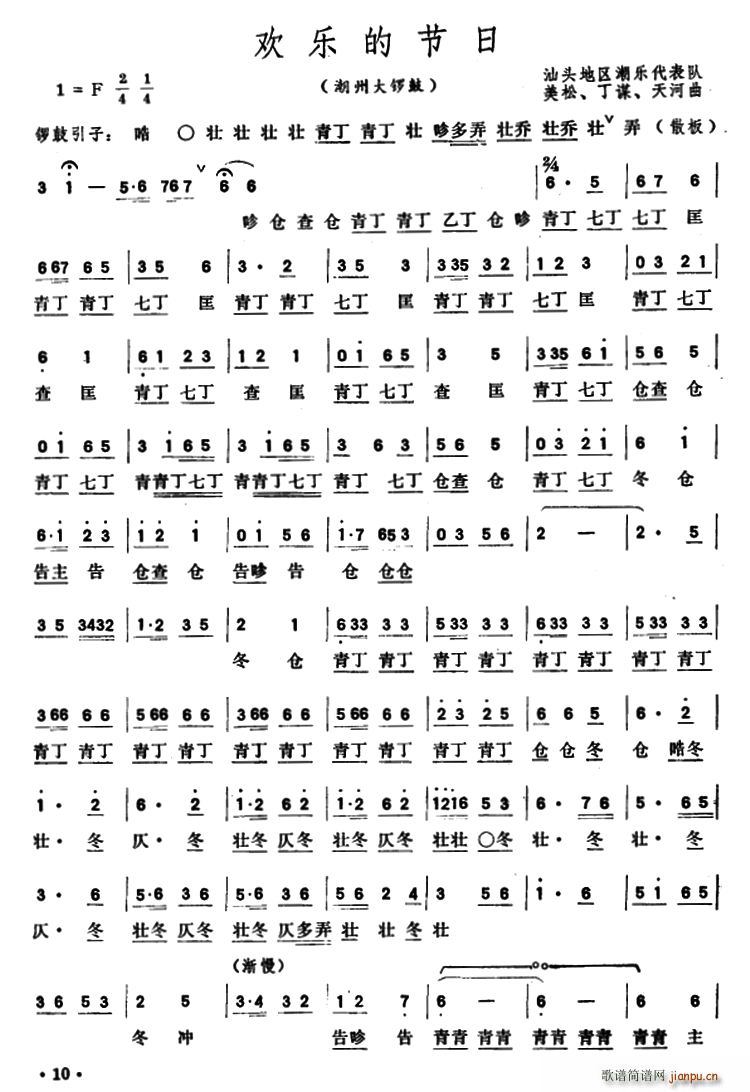 欢乐的节日
1 = F 2/4 1/4
（潮州大锣鼓）
汕头地区潮乐代表队
美松、丁谋、天河曲
锣鼓引子： 皓 〇 壮 壮 壮 壮 青丁 青丁 壮 㕹多弄 壮乔 壮乔 壮 ∨ 弄 （散板）
3 i — 5·6 767 ∨ 6 6 2/4 6· 5 | 6 7 6 |
仓 查 仓 青丁 青丁 乙丁 仓 青丁 七丁 七丁 匡
667 65 | 35 6 | 3· 2 | 35 3 | 335 32 | 12 3 | 03 21 |
青丁 青丁 七丁 匡 青丁 青丁 七丁 匡 青丁 青丁 七丁 匡 青丁 七丁
6 1 | 61 23 | 12 1 | 01 65 | 3 5 | 335 61 | 56 5 |
查 匡 青丁 七丁 查 匡 青丁 七丁 查 匡 青丁 七丁 仓查 仓
01 65 | 3 165 | 3 165 | 3 6 63 | 56 5 | 03 21 | 6 1 |
青丁 七丁 青青丁七丁 青青丁七丁 青丁 七丁 仓查 仓 青丁 七丁 冬 仓
6·1 23 | 12 1 | 01 56 | 1·7 653 | 03 56 | 2 — | 2· 5 |
告主 告 仓查 仓 告 告 仓 仓仓
35 3432 | 1·2 35 | 2 1 | 633 33 | 533 33 | 633 33 | 533 33 |
冬 仓 青丁 青丁 青丁 青丁 青丁 青丁 青丁 青丁
366 66 | 566 66 | 366 66 | 566 66 | 23 25 | 66 5 | 6· 2 |
青丁 青丁 青丁 青丁 青丁 青丁 青丁 青丁 青丁 青丁 仓 仓 冬 仓 皓冬
1· 2 | 6· 2 | 1·2 62 | 1·2 62 | 1216 53 | 6· 76 | 5· 65 |
壮· 冬 仄· 冬 壮冬 仄冬 壮冬 仄冬 壮壮 〇冬 壮· 冬 壮· 冬
3· 6 | 5·6 36 | 5·6 36 | 56 24 | 3 56 | 1· 6 | 51 65 |
仄· 冬 壮冬 仄冬 壮冬 仄多弄 壮 壮 冬 壮
（渐慢）
36 53 | 2 5 | 3·4 32 | 12 7 | 6 — | 6 — | 6 56 |
冬 冲 告 告 青青 青青 青青 青青 青青 主
· 10 ·
歌谱简谱网
jianpu.cn